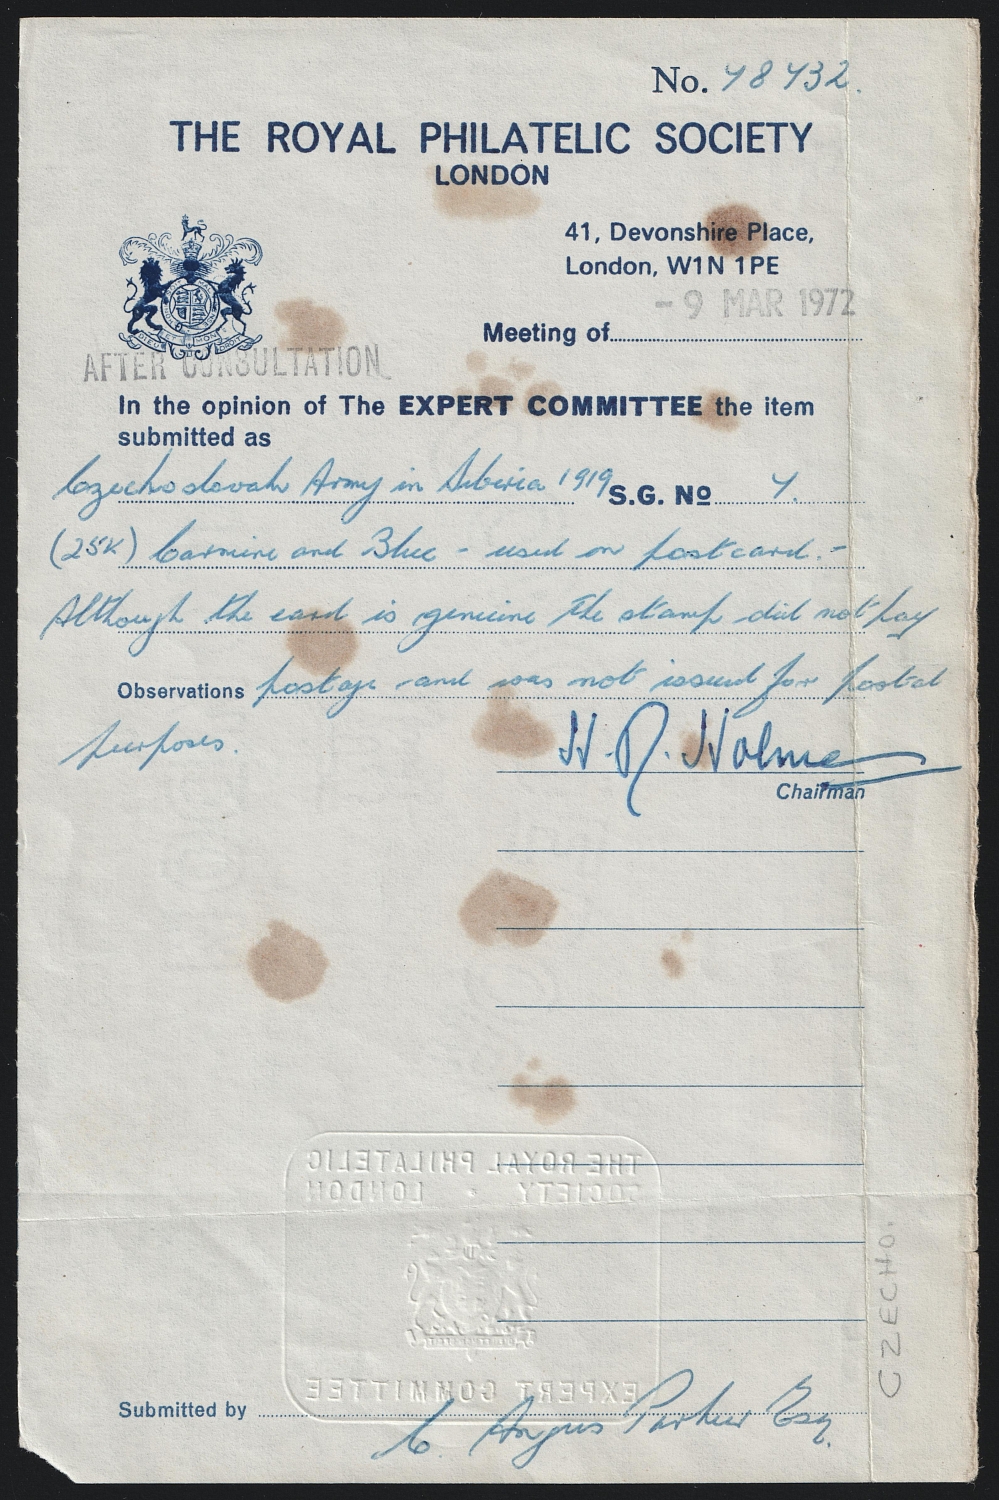 No. 78732.
THE ROYAL PHILATELIC SOCIETY
LONDON
41, Devonshire Place,
London, W1N 1PE
- 9 MAR 1972
Meeting of
AFTER CONSULTATION
In the opinion of The EXPERT COMMITTEE the item
submitted as
Czechoslovak Army in Siberia 1919 S.G. No 7.
(25K) Carmine and Blue - used on postcard. -
Although the card is genuine the stamp did not pay
Observations postage and was not issued for postal
purposes.
H. R. Holme
Chairman
THE ROYAL PHILATELIC
SOCIETY • LONDON
EXPERT COMMITTEE
Submitted by C. Angus Parker Esq.
CZECHO.